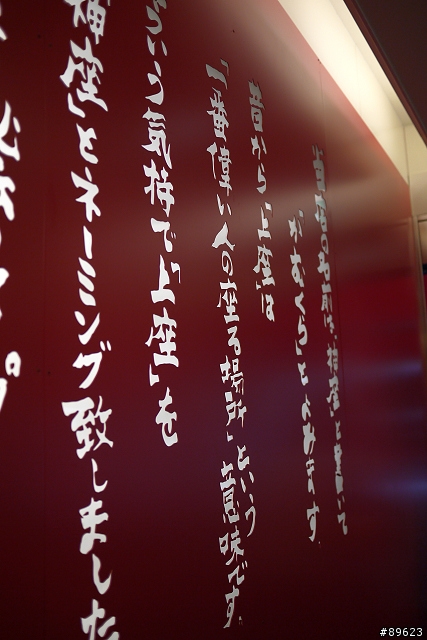 の名前は、「神座」と書いて
「かむくら」とよみます。
昔から「上座」は
「一番偉い人の座る場所」という意味です。
いう気持で「上座」を
座」とネーミング致しました